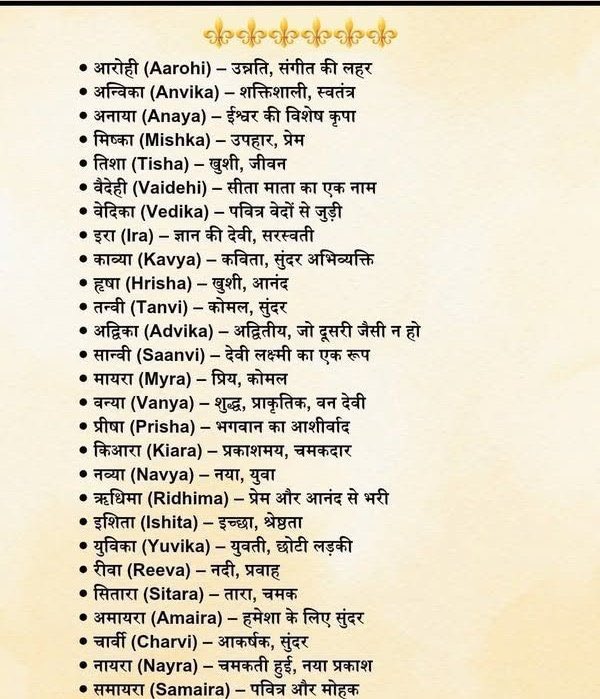 • आरोही (Aarohi) – उन्नति, संगीत की लहर
• अन्विका (Anvika) – शक्तिशाली, स्वतंत्र
• अनाया (Anaya) – ईश्वर की विशेष कृपा
• मिष्का (Mishka) – उपहार, प्रेम
• तिशा (Tisha) – खुशी, जीवन
• वैदेही (Vaidehi) – सीता माता का एक नाम
• वेदिका (Vedika) – पवित्र वेदों से जुड़ी
• इरा (Ira) – ज्ञान की देवी, सरस्वती
• काव्या (Kavya) – कविता, सुंदर अभिव्यक्ति
• हृषा (Hrisha) – खुशी, आनंद
• तन्वी (Tanvi) – कोमल, सुंदर
• अद्विका (Advika) – अद्वितीय, जो दूसरी जैसी न हो
• सान्वी (Saanvi) – देवी लक्ष्मी का एक रूप
• मायरा (Myra) – प्रिय, कोमल
• वन्या (Vanya) – शुद्ध, प्राकृतिक, वन देवी
• प्रीषा (Prisha) – भगवान का आशीर्वाद
• किआरा (Kiara) – प्रकाशमय, चमकदार
• नव्या (Navya) – नया, युवा
• ऋधिमा (Ridhima) – प्रेम और आनंद से भरी
• इशिता (Ishita) – इच्छा, श्रेष्ठता
• युविका (Yuvika) – युवती, छोटी लड़की
• रीवा (Reeva) – नदी, प्रवाह
• सितारा (Sitara) – तारा, चमक
• अमायरा (Amaira) – हमेशा के लिए सुंदर
• चार्वी (Charvi) – आकर्षक, सुंदर
• नायरा (Nayra) – चमकती हुई, नया प्रकाश
• समायरा (Samaira) – पवित्र और मोहक